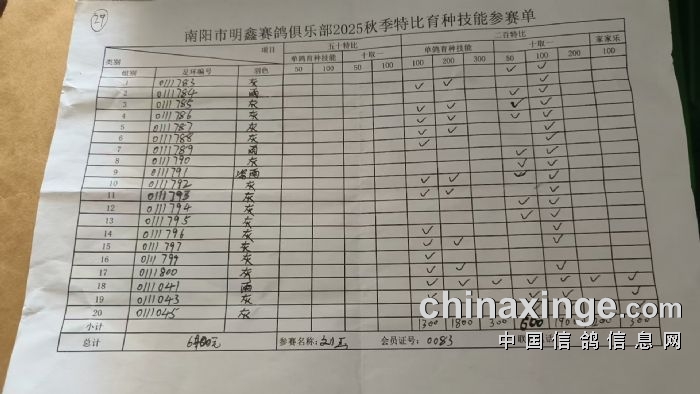 29
南阳市明鑫赛鸽俱乐部2025秋季特比育种技能参赛单
项目 五十特比 二百特比 家家乐
类别 单鸽育种技能 十取一 单鸽育种技能 十取一
组别 足环编号 羽色 50 100 50 100 100 200 300 50 100 200 100
1 0111783 灰 ✓ ✓
2 0111784 雨 ✓ ✓ ✓
3 0111785 灰 ✓ ✓
4 0111786 灰 ✓ ✓ ✓ ✓
5 0111787 灰 ✓ ✓ ✓ ✓
6 0111788 灰 ✓ ✓ ✓
7 0111789 雨 ✓ ✓
8 0111790 灰 ✓ ✓
9 0111791 雨 ✓ ✓
10 0111792 灰 ✓ ✓ ✓ ✓
11 0111793 灰 ✓ ✓ ✓
12 0111794 灰 ✓ ✓
13 0111795 灰 ✓ ✓
14 0111796 灰 ✓ ✓
15 0111797 灰 ✓ ✓ ✓
16 0111799 灰 ✓
17 0111800 灰 ✓ ✓ ✓
18 0111041 雨 ✓ ✓ ✓ ✓ ✓ ✓ ✓
19 0111043 灰 ✓ ✓ ✓
20 0111045 灰
小计 1300 1800 300 600
总计 参赛名称: 会员证号: 0083
chinaxinge.com
中国信鸽信息网